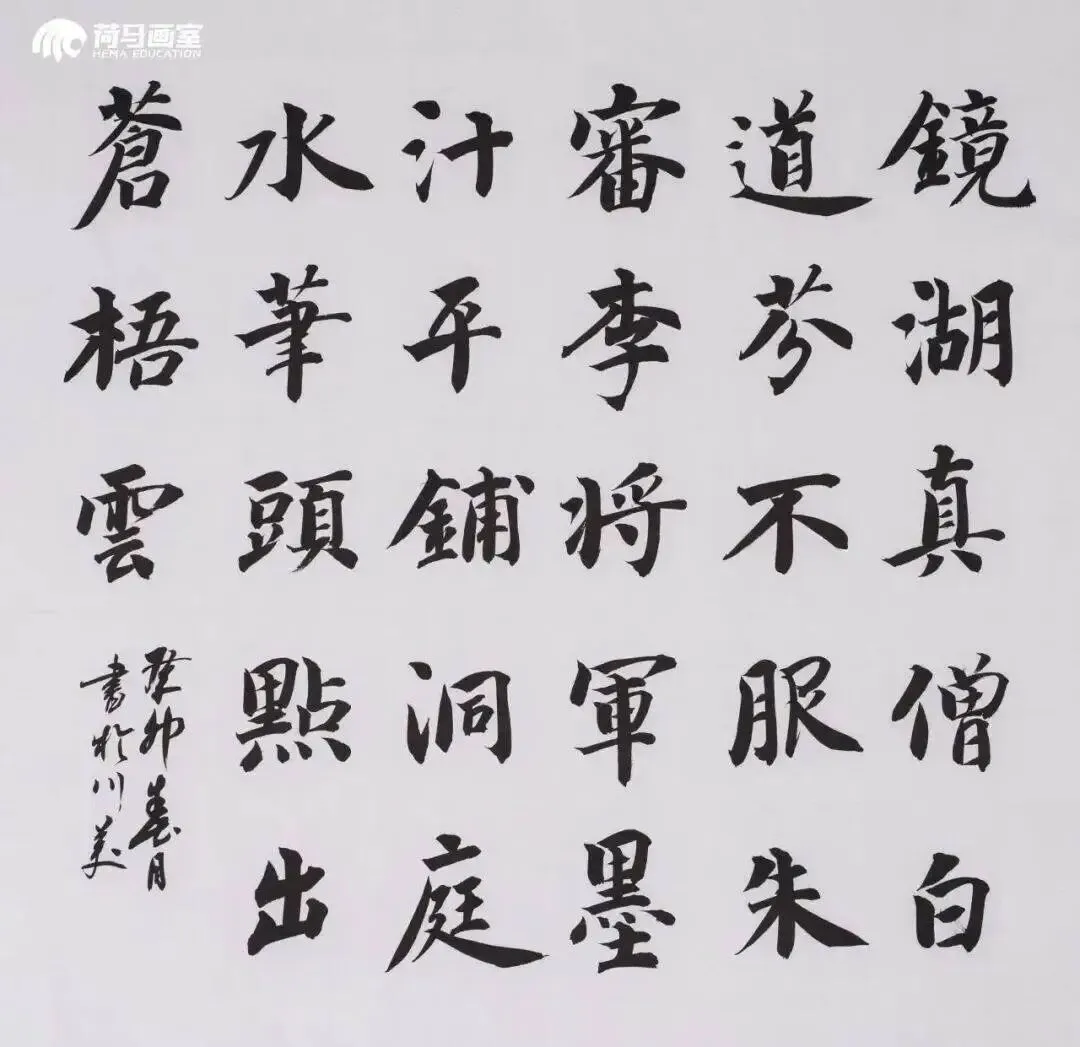 荷马画室
HEMA EDUCATION
鏡湖真僧白
道芬不服朱
審李將軍墨
汁平鋪洞庭
水筆頭點出
蒼梧雲
癸卯春月
書於川美